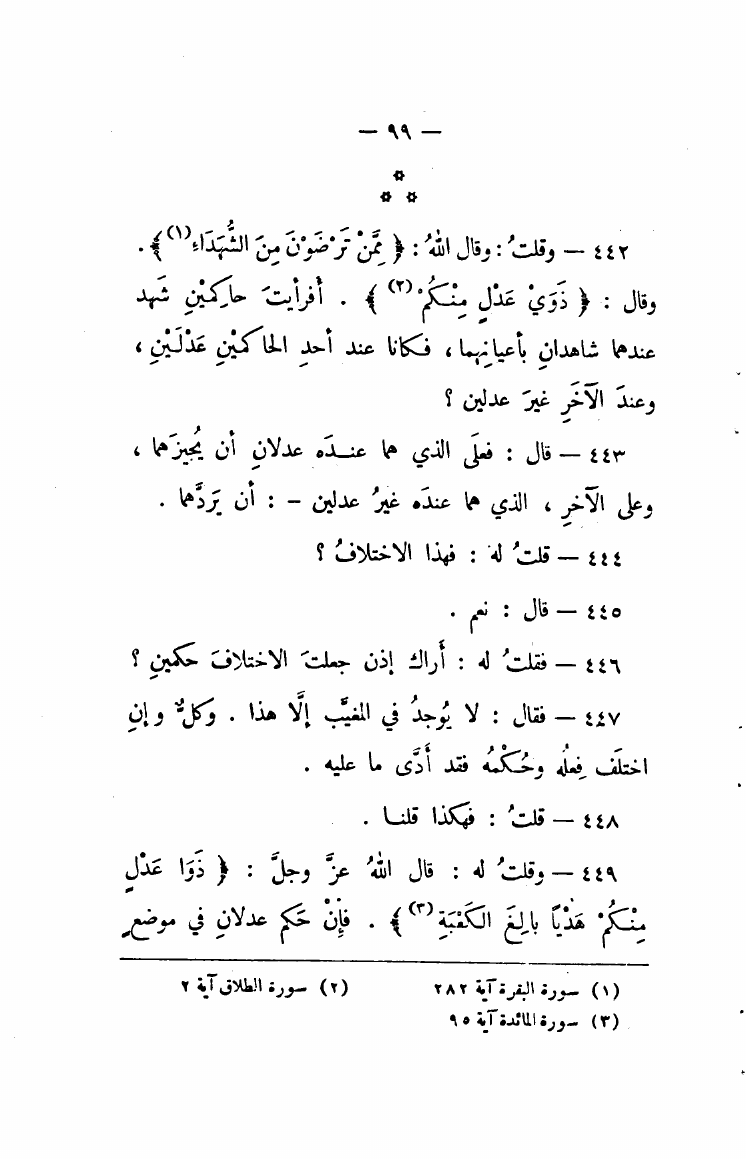 — ٩٩ —
٤٤٢ — وقلتُ : وقال اللهُ : ﴿ مِمَّنْ تَرْضَوْنَ مِنَ الشُّهَدَاءِ (١) ﴾ .
وقال : ﴿ ذَوَيْ عَدْلٍ مِنْكُمْ (٢) ﴾ . أفرأيتَ حاكِمَيْنِ شَهِد
عندهما شاهدانِ بأعيانِهما ، فكانا عند أحدِ الحاكمَيْنِ عَدْلَيْنِ ،
وعندَ الآخَرِ غيرَ عدلين ؟
٤٤٣ — قال : فعلَى الذي هما عنـدَه عدلانِ أن يُجيزَهما ،
وعلى الآخرِ ، الذي هما عندَه غيرُ عدلين – : أن يَردَّهما .
٤٤٤ — قلتُ له : فهذا الاختلافُ ؟
٤٤٥ — قال : نعم .
٤٤٦ — فقلتُ له : أَراكَ إذن جعلتَ الاختلافَ حكمينِ ؟
٤٤٧ — فقال : لا يُوجدُ في المغيَّب إلَّا هذا . وكلٌّ وإنِ
اختلَف فِعلُه وحُكْمُه فقد أَدَّى ما عليه .
٤٤٨ — قلتُ : فهكذا قلنـا .
٤٤٩ — وقلتُ له : قال اللهُ عزَّ وجلَّ : ﴿ ذَوَا عَدْلٍ
مِنْكُمْ هَدْيًا بَالِغَ الكَعْبَةِ (٣) ﴾ . فإِنْ حَكَم عدلانِ في موضعٍ
(١) سورة البقرة آية ٢٨٢ (٢) سورة الطلاق آية ٢
(٣) سورة المائدة آية ٩٥